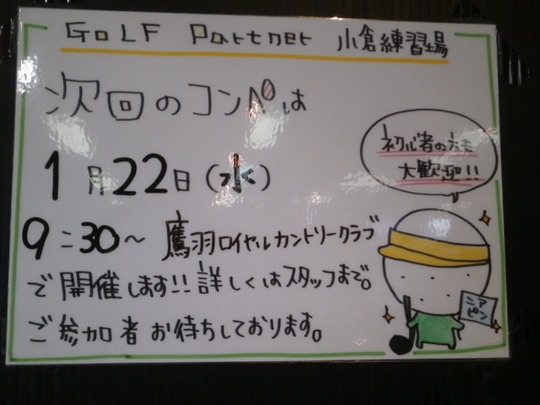 GOLF Partner 小倉練習場
次回のコンペは
1月22日(水)
9:30〜 鷹羽ロイヤルカントリークラブ
で開催します!!詳しくはスタッフまで。
ご参加者お待ちしております。
初心者の方も
大歓迎!!
ニア
ピン